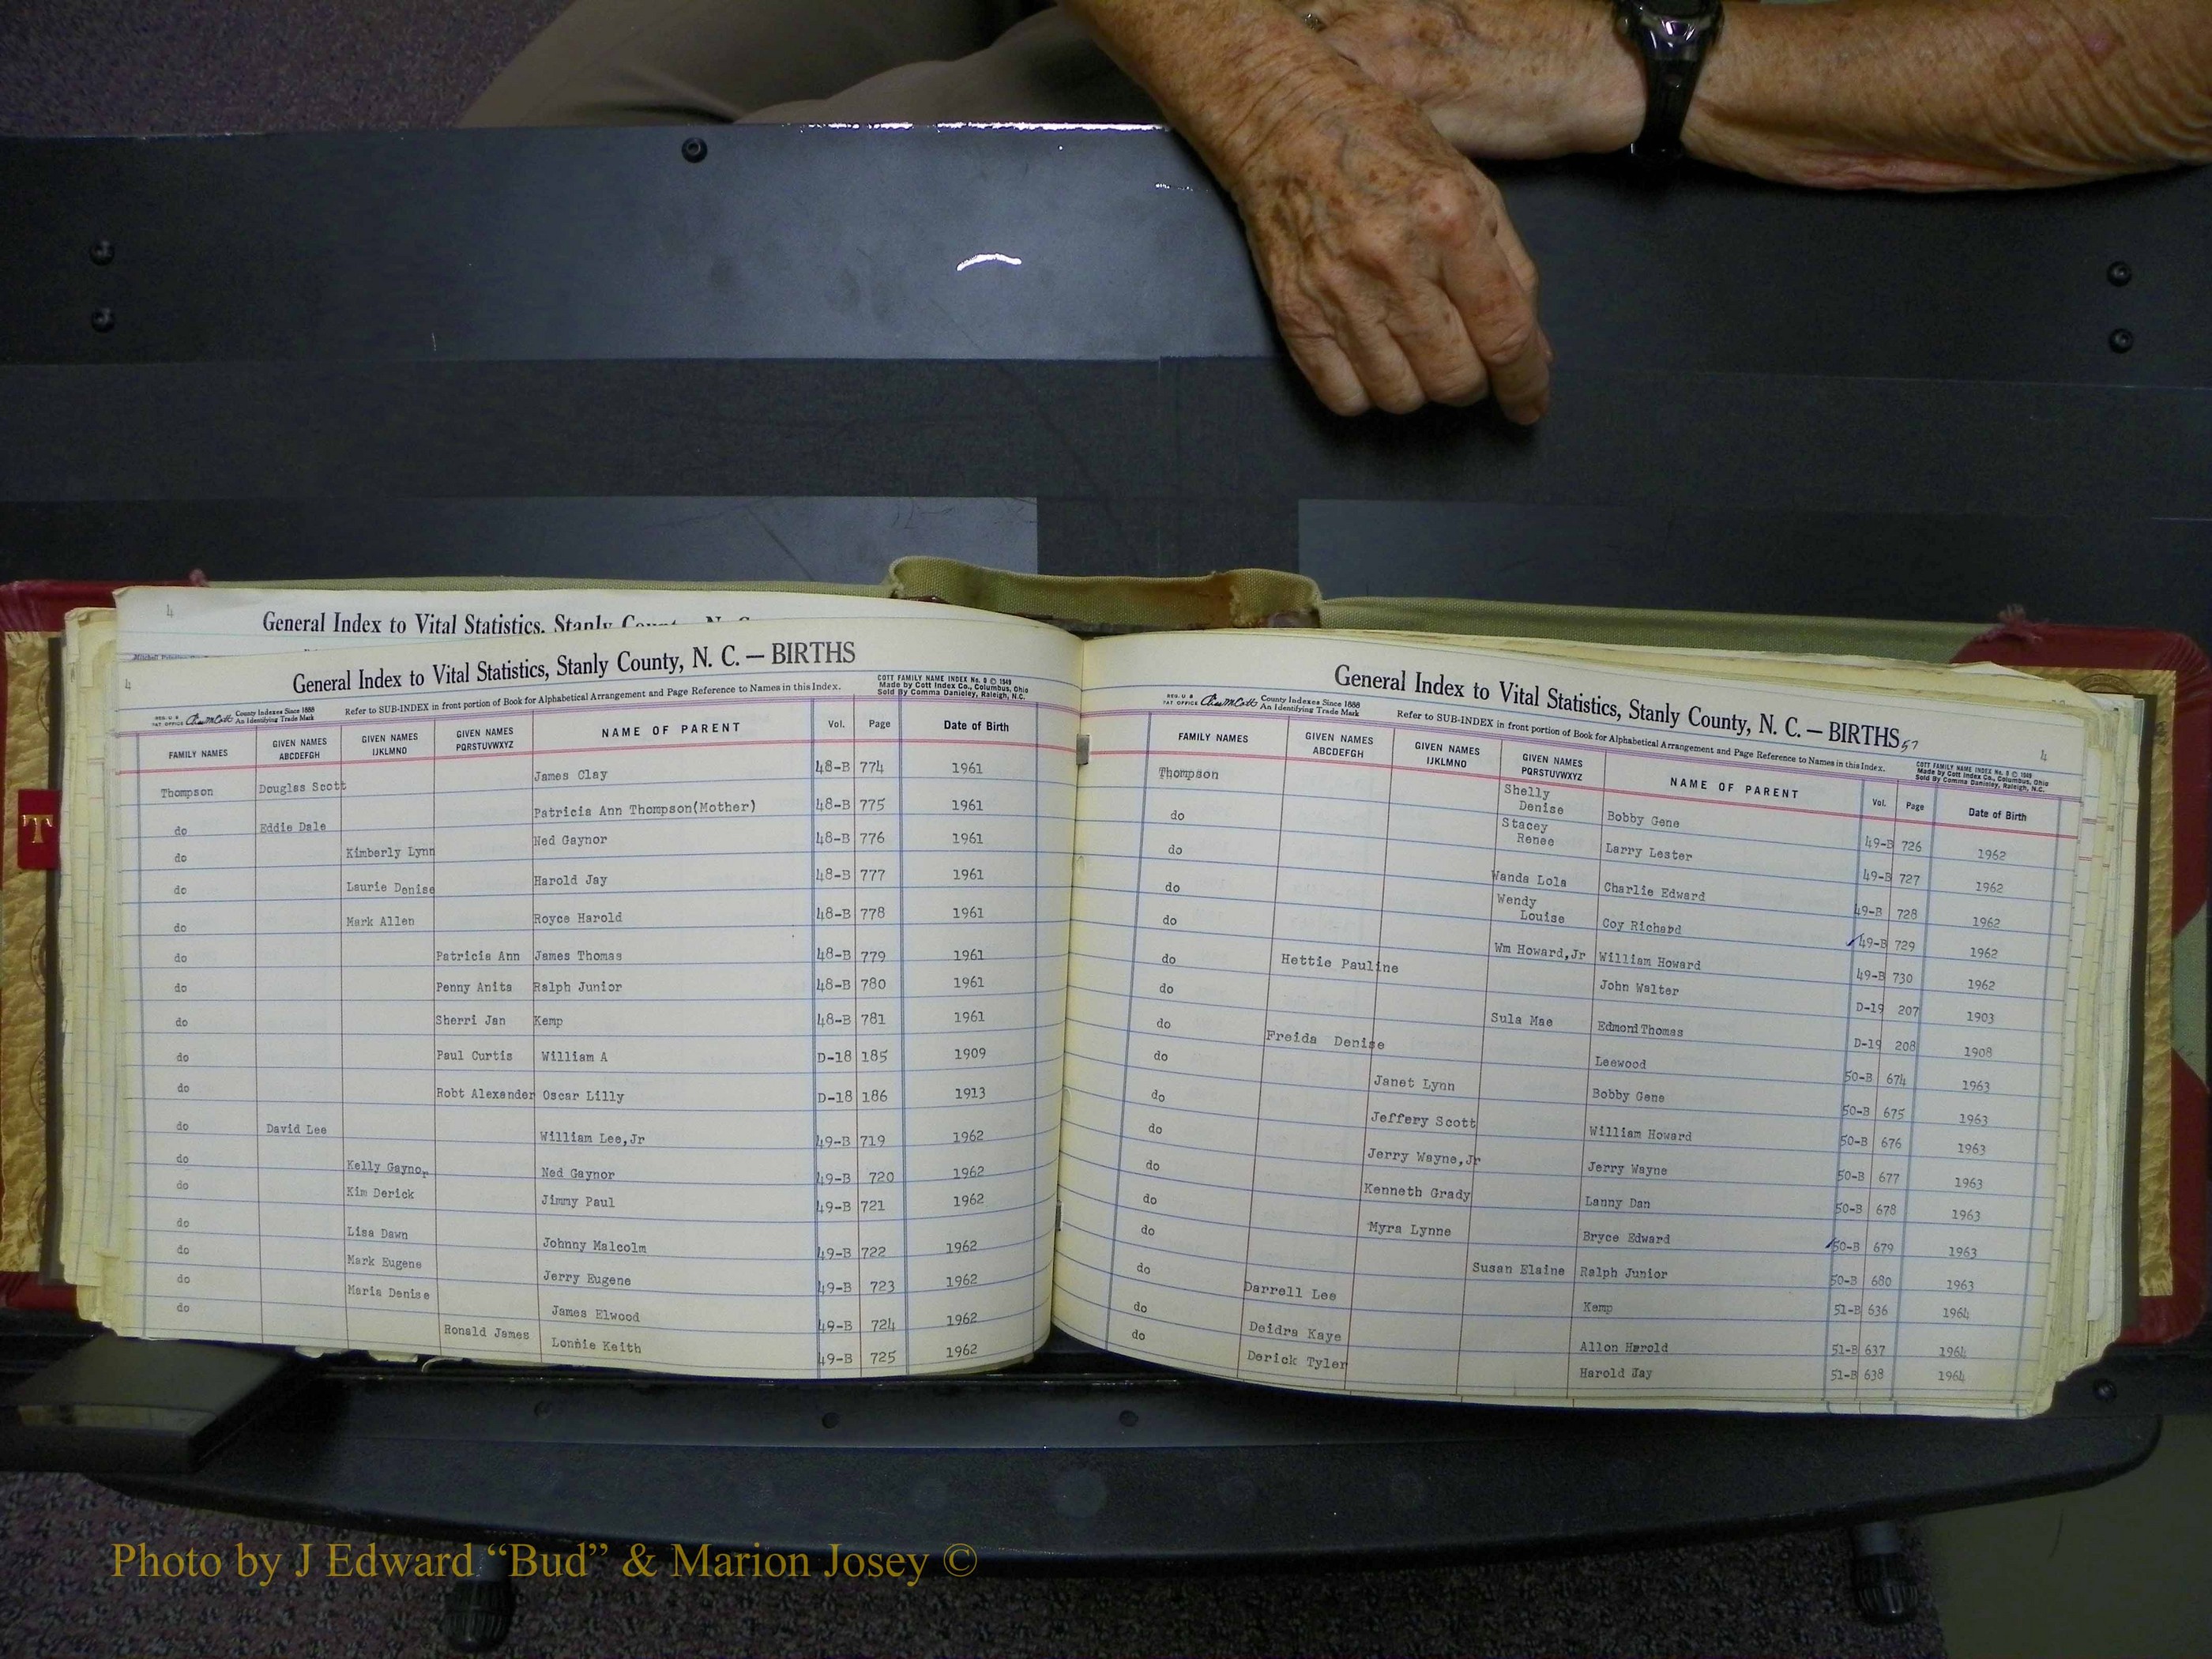 4
General Index to Vital Statistics, Stanly County, N. C.
4
General Index to Vital Statistics, Stanly County, N. C. — BIRTHS
REG. U S PAT. OFFICE County Indexes Since 1888 An Identifying Trade Mark Refer to SUB-INDEX in front portion of Book for Alphabetical Arrangement and Page Reference to Names in this Index.
COTT FAMILY NAME INDEX No. 9 © 1949
Made by Cott Index Co., Columbus, Ohio
Sold By Comma Danieley, Raleigh, N.C.
FAMILY NAMES GIVEN NAMES ABCDEFGH GIVEN NAMES IJKLMNO GIVEN NAMES PQRSTUVWXYZ NAME OF PARENT Vol. Page Date of Birth
Thompson Douglas Scott James Clay 48-B 774 1961
do Eddie Dale Patricia Ann Thompson(Mother) 48-B 775 1961
do Kimberly Lynn Ned Gaynor 48-B 776 1961
do Laurie Denise Harold Jay 48-B 777 1961
do Mark Allen Royce Harold 48-B 778 1961
do Patricia Ann James Thomas 48-B 779 1961
do Penny Anita Ralph Junior 48-B 780 1961
do Sherri Jan Kemp 48-B 781 1961
do Paul Curtis William A D-18 185 1909
do Robt Alexander Oscar Lilly D-18 186 1913
do David Lee William Lee,Jr 49-B 719 1962
do Kelly Gaynor Ned Gaynor 49-B 720 1962
do Kim Derick Jimmy Paul 49-B 721 1962
do Lisa Dawn Johnny Malcolm 49-B 722 1962
do Mark Eugene Jerry Eugene 49-B 723 1962
do Maria Denise James Elwood 49-B 724 1962
do Ronald James Lonnie Keith 49-B 725 1962
T
General Index to Vital Statistics, Stanly County, N. C. — BIRTHS 57
4
REG. U S PAT OFFICE County Indexes Since 1888 An Identifying Trade Mark Refer to SUB-INDEX in front portion of Book for Alphabetical Arrangement and Page Reference to Names in this Index.
COTT FAMILY NAME INDEX No. 9 © 1949
Made by Cott Index Co., Columbus, Ohio
Sold By Comma Danieley, Raleigh, N.C.
FAMILY NAMES GIVEN NAMES ABCDEFGH GIVEN NAMES IJKLMNO GIVEN NAMES PQRSTUVWXYZ NAME OF PARENT Vol. Page Date of Birth
Thompson Shelly Denise Bobby Gene 49-B 726 1962
do Stacey Renee Larry Lester 49-B 727 1962
do Wanda Lola Charlie Edward 49-B 728 1962
do Wendy Louise Coy Richard 49-B 729 1962
do Wm Howard,Jr William Howard 49-B 730 1962
do Hettie Pauline John Walter D-19 207 1903
do Sula Mae Edmond Thomas D-19 208 1908
do Freida Denise Leewood 50-B 674 1963
do Janet Lynn Bobby Gene 50-B 675 1963
do Jeffery Scott William Howard 50-B 676 1963
do Jerry Wayne,Jr Jerry Wayne 50-B 677 1963
do Kenneth Grady Lanny Dan 50-B 678 1963
do Myra Lynne Bryce Edward 50-B 679 1963
do Susan Elaine Ralph Junior 50-B 680 1963
do Darrell Lee Kemp 51-B 636 1964
do Deidra Kaye Allon Harold 51-B 637 1964
do Derick Tyler Harold Jay 51-B 638 1964
Photo by J Edward “Bud” & Marion Josey ©